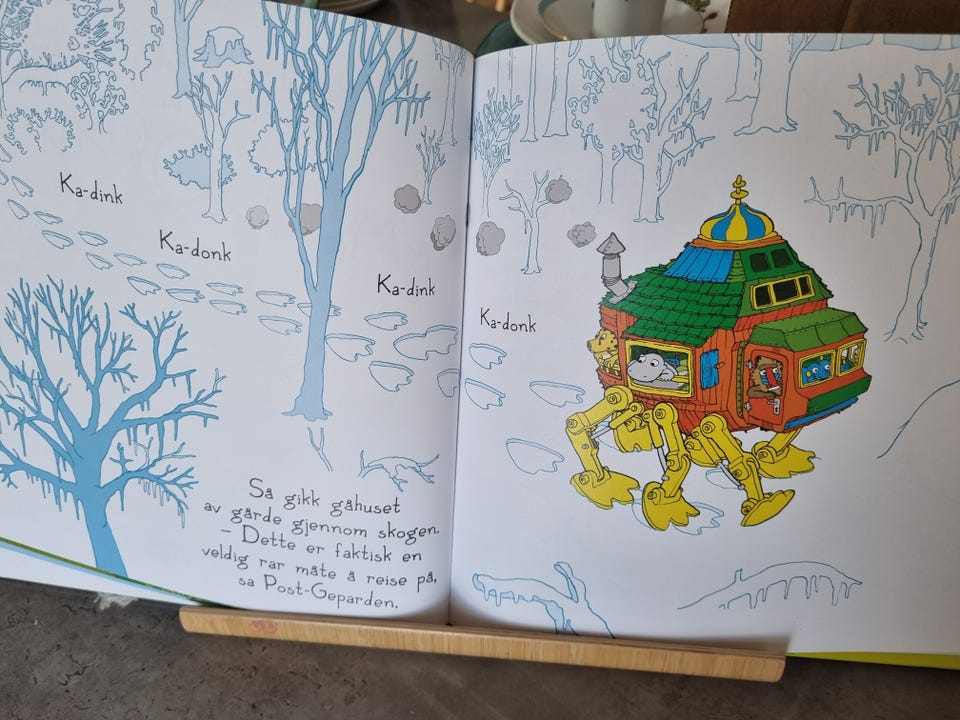 Ka-dink
Ka-donk
Ka-dink
Ka-donk
Så gikk gåhuset
av gårde gjennom skogen.
– Dette er faktisk en
veldig rar måte å reise på,
sa Post-Geparden.